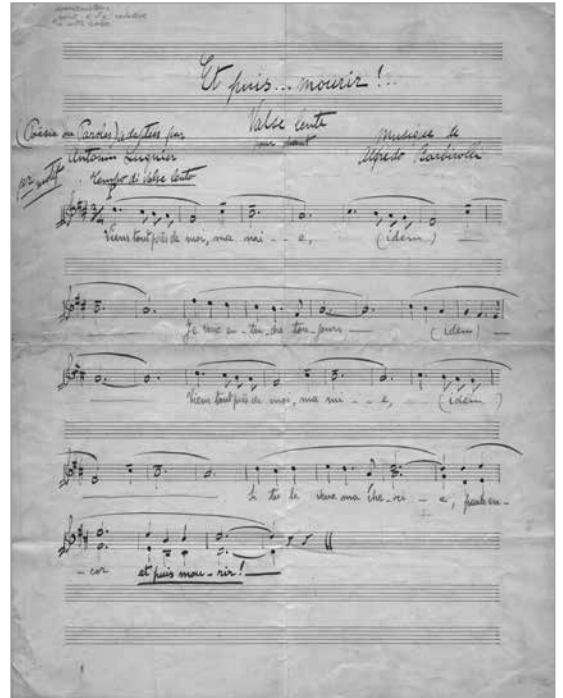 Et puis... mourir!..
Valse lente
pour chant
(Poésie ou Paroles) adaptées par
Antonin Lugnier
musique de
Alfredo Barbirolli
Tempo di Valse lento
Viens tout près de moi, ma mi - - e, (idem)
Je veux en - ten - dre tou - jours (idem)
Viens tout près de moi, ma mi - - e, (idem)
Si tu le veux ma ché - ri - e,
- cor et puis mou - rir!